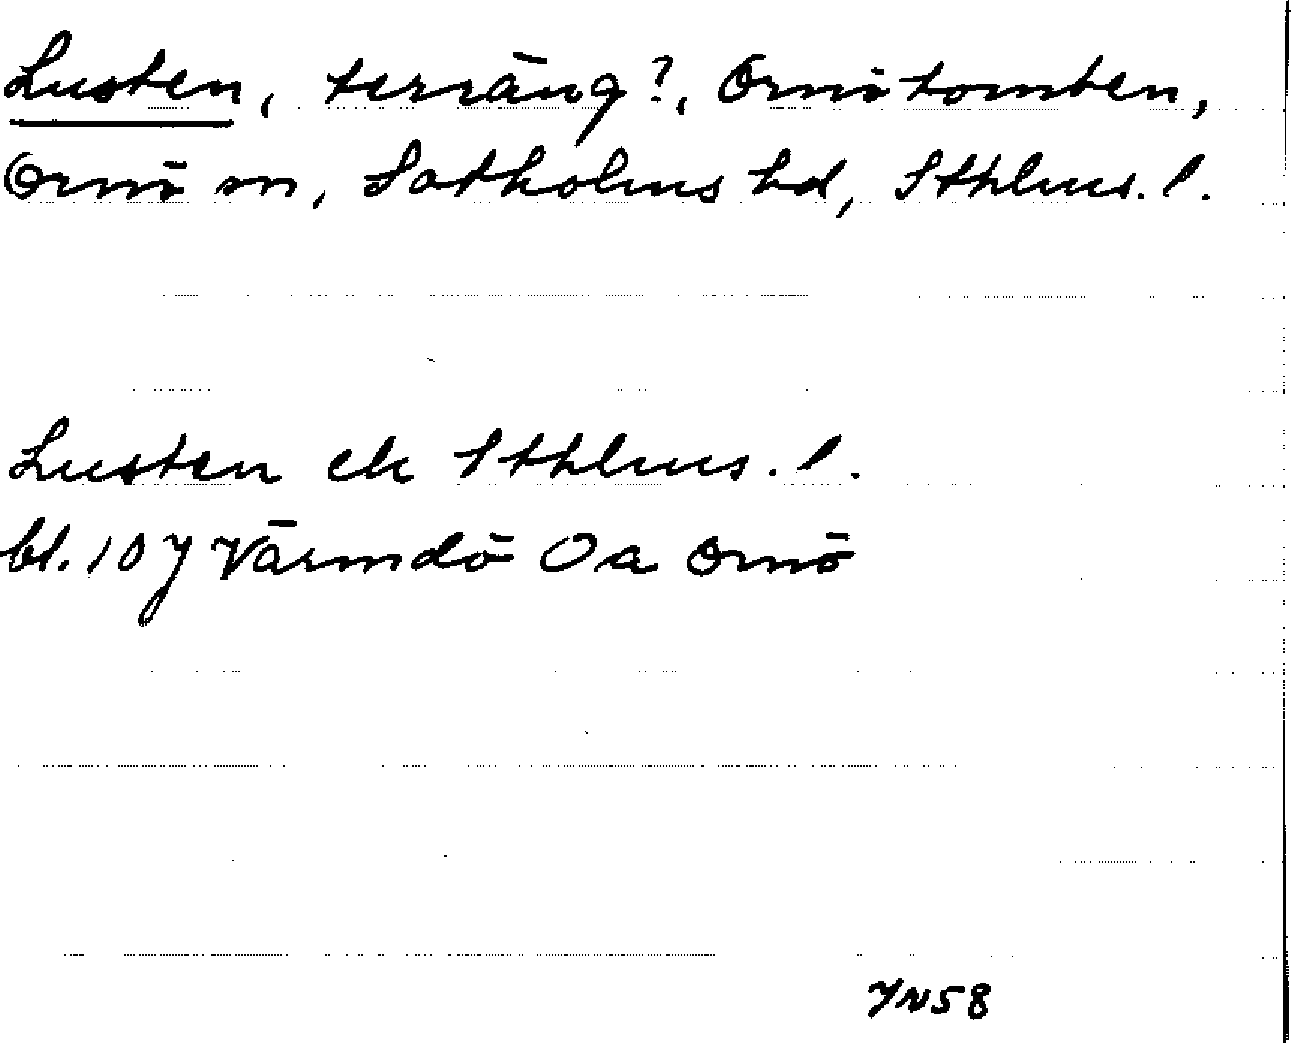 Lusten, terräng?, Ornö tomten,
Ornö sn, Sotholms hd, Sthlms. l.
Lusten ek Sthlms. l.
bl. 107 Värmdö Oa Ornö
YN58